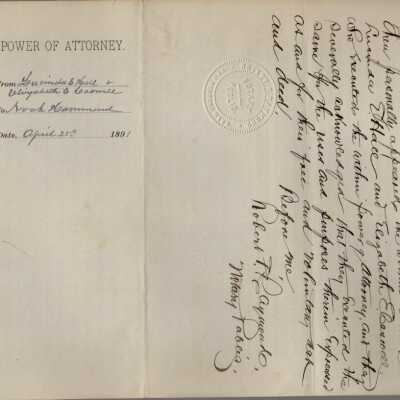 POWER OF ATTORNEY.
From Lucinda E Hall &
Elizabeth E
To Noah Hammond
Date, April 25th 1891
Then personally appeared the
Lucinda E Hall and Elizabeth E
who executed the within power of Attorney and they
severally acknowledged that they executed the
same for the uses and purposes therein expressed
as and for their free and voluntary act
and deed,
Before me
Robert F. Raymond,
Notary Public,